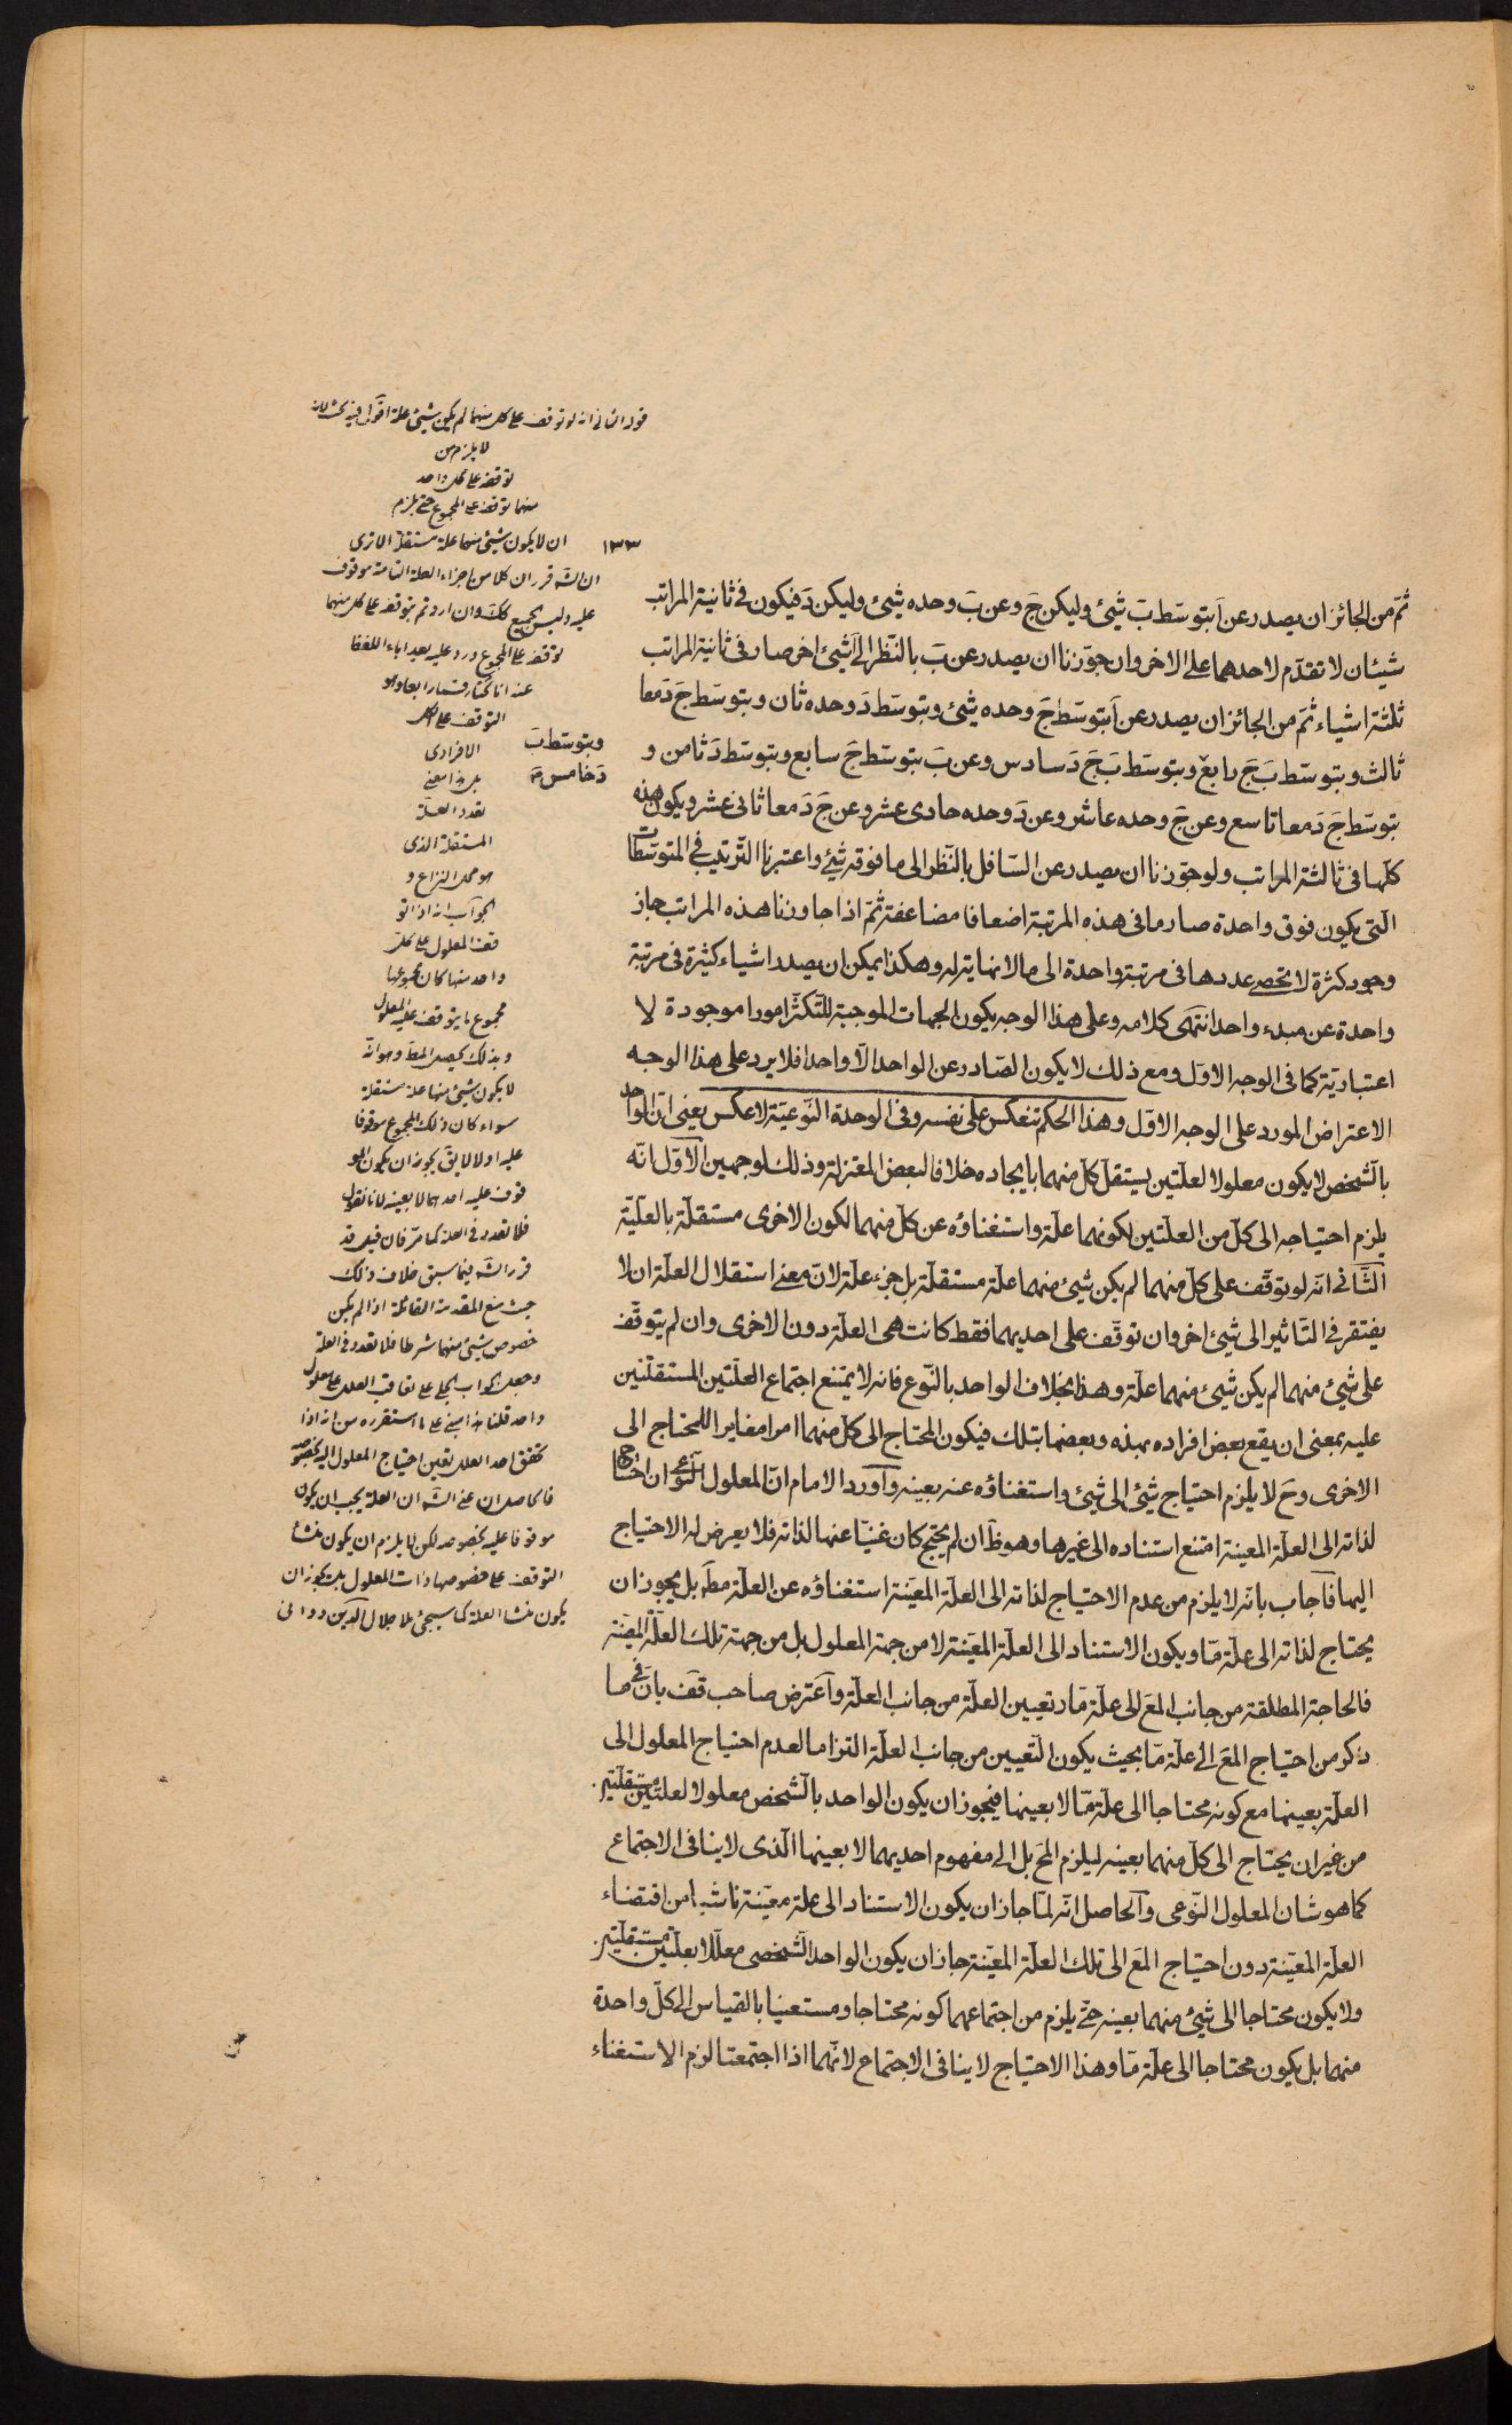 ثمّ من الجائز ان يصدر عن آ بتوسّط بَ شيئ وليكن جَ وعن بَ وحده شيئ وليكن دَ فيكون فى ثانية المراتب
شيئان لا تقدّم لاحدهما على الاخر وان جوّزنا ان يصدر عن بَ بالنّظر الى آ شيئ اخر صار فى ثانية المراتب
ثلثة اشياء ثمّ من الجائز ان يصدر عن آ بتوسّط جَ وحده شيئ وبتوسّط دَ وحده ثان وبتوسّط جَ دَ معا
ثالث وبتوسّط بَ جَ رابع وبتوسّط بَ دَ خامس وبتوسّط بَ جَ دَ سادس وعن بَ بتوسّط جَ سابع وبتوسّط دَ ثامن و
بتوسّط جَ دَ معا تاسع وعن جَ وحده عاشر وعن دَ وحده حادى عشر وعن جَ دَ معا ثانى عشر ويكون هذه
كلّها فى ثالثة المراتب ولو جوّزنا ان يصدر عن السّافل بالنّظر الى ما فوقه شيئ واعتبرنا التّرتيب فى المتوسّطات
الّتى يكون فوق واحدة صار ما فى هذه المرتبة اضعافا مضاعفة ثمّ اذا جاوزنا هذه المراتب جاز
وجود كثرة لا تحصى عددها فى مرتبة واحدة الى ما لا نهاية له وهكذا يمكن ان يصدر اشياء كثيرة فى مرتبة
واحدة عن مبدء واحد انتهى كلامه وعلى هذا الوجه يكون الجهات الموجبة للتّكثّر امورا موجودة لا
اعتباريّة كما فى الوجه الاوّل ومع ذلك لا يكون الصّادر عن الواحد الّا واحدا فلا يرد على هذا الوجه
الاعتراض المورد على الوجه الاوّل وهذا الحكم تنعكس على نفسه وفى الوحدة النّوعيّة لا عكس يعنى انّ الواحد
بالشّخص لا يكون معلولا لعلّتين يستقلّ كلّ منهما بايجاده خلافا لبعض المعتزلة وذلك لوجهين الاوّل انّه
يلزم احتياجه الى كلّ من العلّتين لكونهما علّة واستغناؤه عن كلّ منهما لكون الاخرى مستقلّة بالعلّيّة
الثّانى انّه لو توقّف على كلّ منهما لم يكن شيئ منهما علّة مستقلّة بل جزء علّة لانّ معنى استقلال العلّة ان لا
يفتقر فى التّاثير الى شيئ اخر وان توقّف على احديهما فقط كانت هى العلّة دون الاخرى وان لم يتوقّف
على شيئ منهما لم يكن شيئ منهما علّة وهذا بخلاف الواحد بالنّوع فانه لا يمتنع اجتماع العلّتين المستقلّتين
عليه بمعنى ان يقع بعض افراده بهذه وبعضها بتلك فيكون المحتاج الى كلّ منهما امرا مغايرا للمحتاج الى
الاخرى وحَ لا يلزم احتياج شيئ الى شيئ واستغناؤه عنه بعينه وآورد الامام انّ المعلول النّوعى ان احتاج
لذاته الى العلّة المعينة امتنع استناده الى غيرها وهو ظَ ان لم يحتج كان غنيّا عنها لذاته فلا يعرض له الاحتياج
اليها فآجاب بانّه لا يلزم من عدم الاحتياج لذاته الى العلّة المعيّنة استغناؤه عن العلّة مطَ بل يجوز ان
يحتاج لذاته الى علّة مّا ويكون الاستناد الى العلّة المعيّنة لا من جهة المعلول بل من جهة تلك العلّة المعيّنة
فالحاجة المطلقة من جانب المعَ الى علّة مّا وتعيين العلّة من جانب العلّة وآعترض صاحب قفَ بانّ فى ما
ذكر من احتياج المعَ الى علّة مّا بحيث يكون التّعيين من جانب العلّة التزاما لعدم احتياج المعلول الى
العلّة بعينها مع كونه محتاجا الى علّة مّا لا بعينها فيجوز ان يكون الواحد بالشّخص معلولا لعلّتين مستقلّتين
من غير ان يحتاج الى كلّ منهما بعينه ليلزم المحَ بل الى مفهوم احديهما لا بعينها الّذى لا ينافى الاجتماع
كما هو شان المعلول النّوعى وآلحاصل انّه لمّا جاز ان يكون الاستناد الى علّة معيّنة ناشيا من اقتضاء
العلّة المعيّنة دون احتياج المعَ الى تلك العلّة المعيّنة جاز ان يكون الواحد الشّخصى معلّلا بعلّتين مستقلّتين
ولا يكون محتاجا الى شيئ منهما بعينه حتّى يلزم من اجتماعهما كونه محتاجا ومستغنيا بالقياس الى كلّ واحدة
منهما بل يكون محتاجا الى علّة مّا وهذا الاحتياج لا ينافى الاجتماع لانّهما اذا اجتمعتا لزم الاستغناء
١٣٣
قوله الثانى انه لو توقف على كل منهما لم يكن شيئ علة اقول فيه بحث لانه
لا يلزم من
توقفه على كل واحد
منهما توقفه على المجموع حتى يلزم
ان لا يكون شيئ منهما علة مستقلة الا ترى
ان الشَ قرر ان كلا من اجزاء العلة التامة موقوف
عليه وليس الجميع كك وان اردتم بتوقفه على كل منهما
توقفه على المجموع ورد عليه بعد اباء اللفظ
عنه انا نختار قسما رابعا وهو
التوقف على الكل
الافرادى
بل هذا معنى
تعدد العلة
المستقلة الذى
هو محل النزاع و
الجواب انه اذا تو
قف المعلول على كل
واحد منهما كان مجموعهما
مجموع ما يتوقف عليه المعلول
وبذلك يحصل المطَ وهو انه
لا يكون شيئ منهما علة مستقلة
سواء كان ذلك المجموع موقوفا
عليه اولا لا يقَ يجوز ان يكون المو
قوف عليه احدهما لا بعينه لانا نقول
فلا تعدد فى العلة كما مرّ فان قيل قد
قرر الشَ فيما سبق خلاف ذلك
حيث منع المقدمة القائلة اذا لم يكن
خصوص شيئ منهما شرطا فلا تعدد فى العلة
وجعل الجواب الجلى على تعاقب العلل على معلول
واحد قلنا هذا مبنى على ما استقرره من انه اذا
تحقق احد العلل تعين احتياج المعلول اليه بخصوصه
فالحاصل ان عند الشَ ان العلة يجب ان يكون
موقوفا عليه بخصوصه لكن لا يلزم ان يكون منشأ
التوقف على خصوصها ذات المعلول بل يجوز ان
يكون منشأ العلة كما سيجئ ملا جلال الدين دوانى
وبتوسّط بَ
دَ خامس